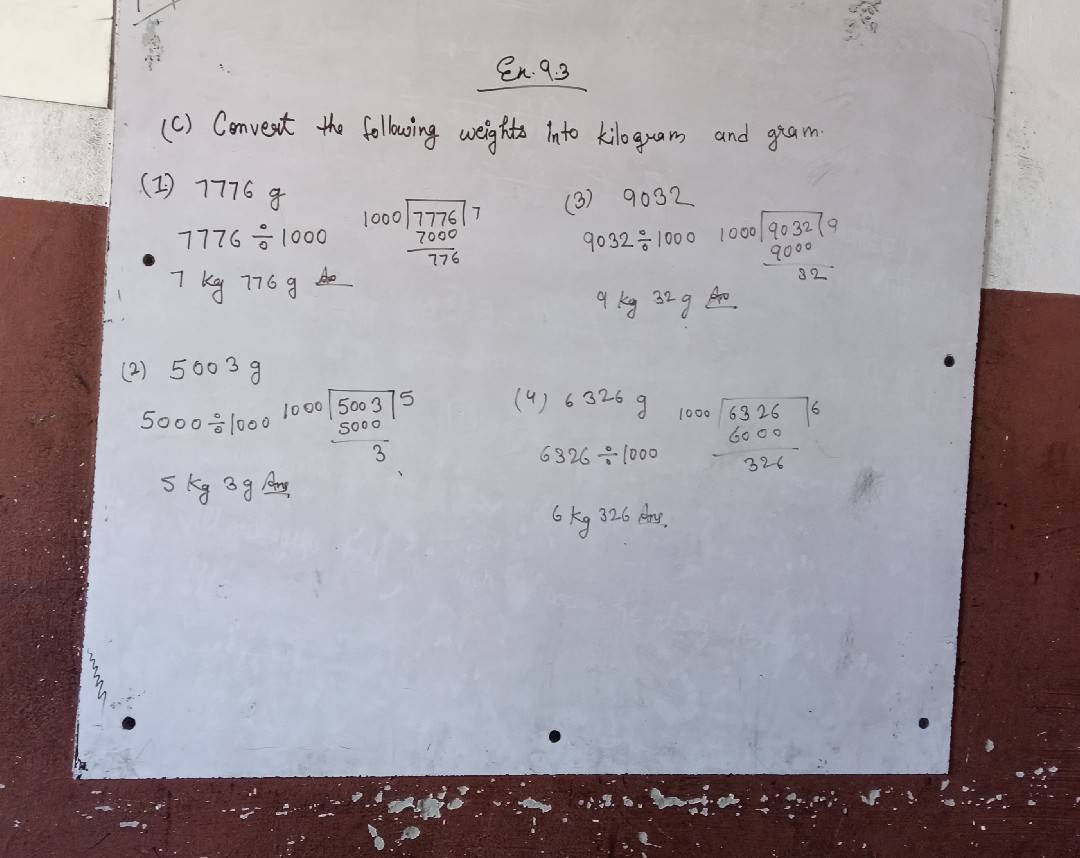 Ex. 9.3
(C) Convert the following weights into kilogram and gram.
(1) 7776 g
7776 ÷ 1000
1000 7776 7
7000
776
7 kg 776 g
(2) 5003 g
5000 ÷ 1000
1000 5003 5
5000
3
5 kg 3 g Ans
(3) 9032
9032 ÷ 1000
1000 9032 9
9000
32
9 kg 32 g
(4) 6326 g
1000 6326 6
6000
326
6326 ÷ 1000
6 kg 326 Ans.